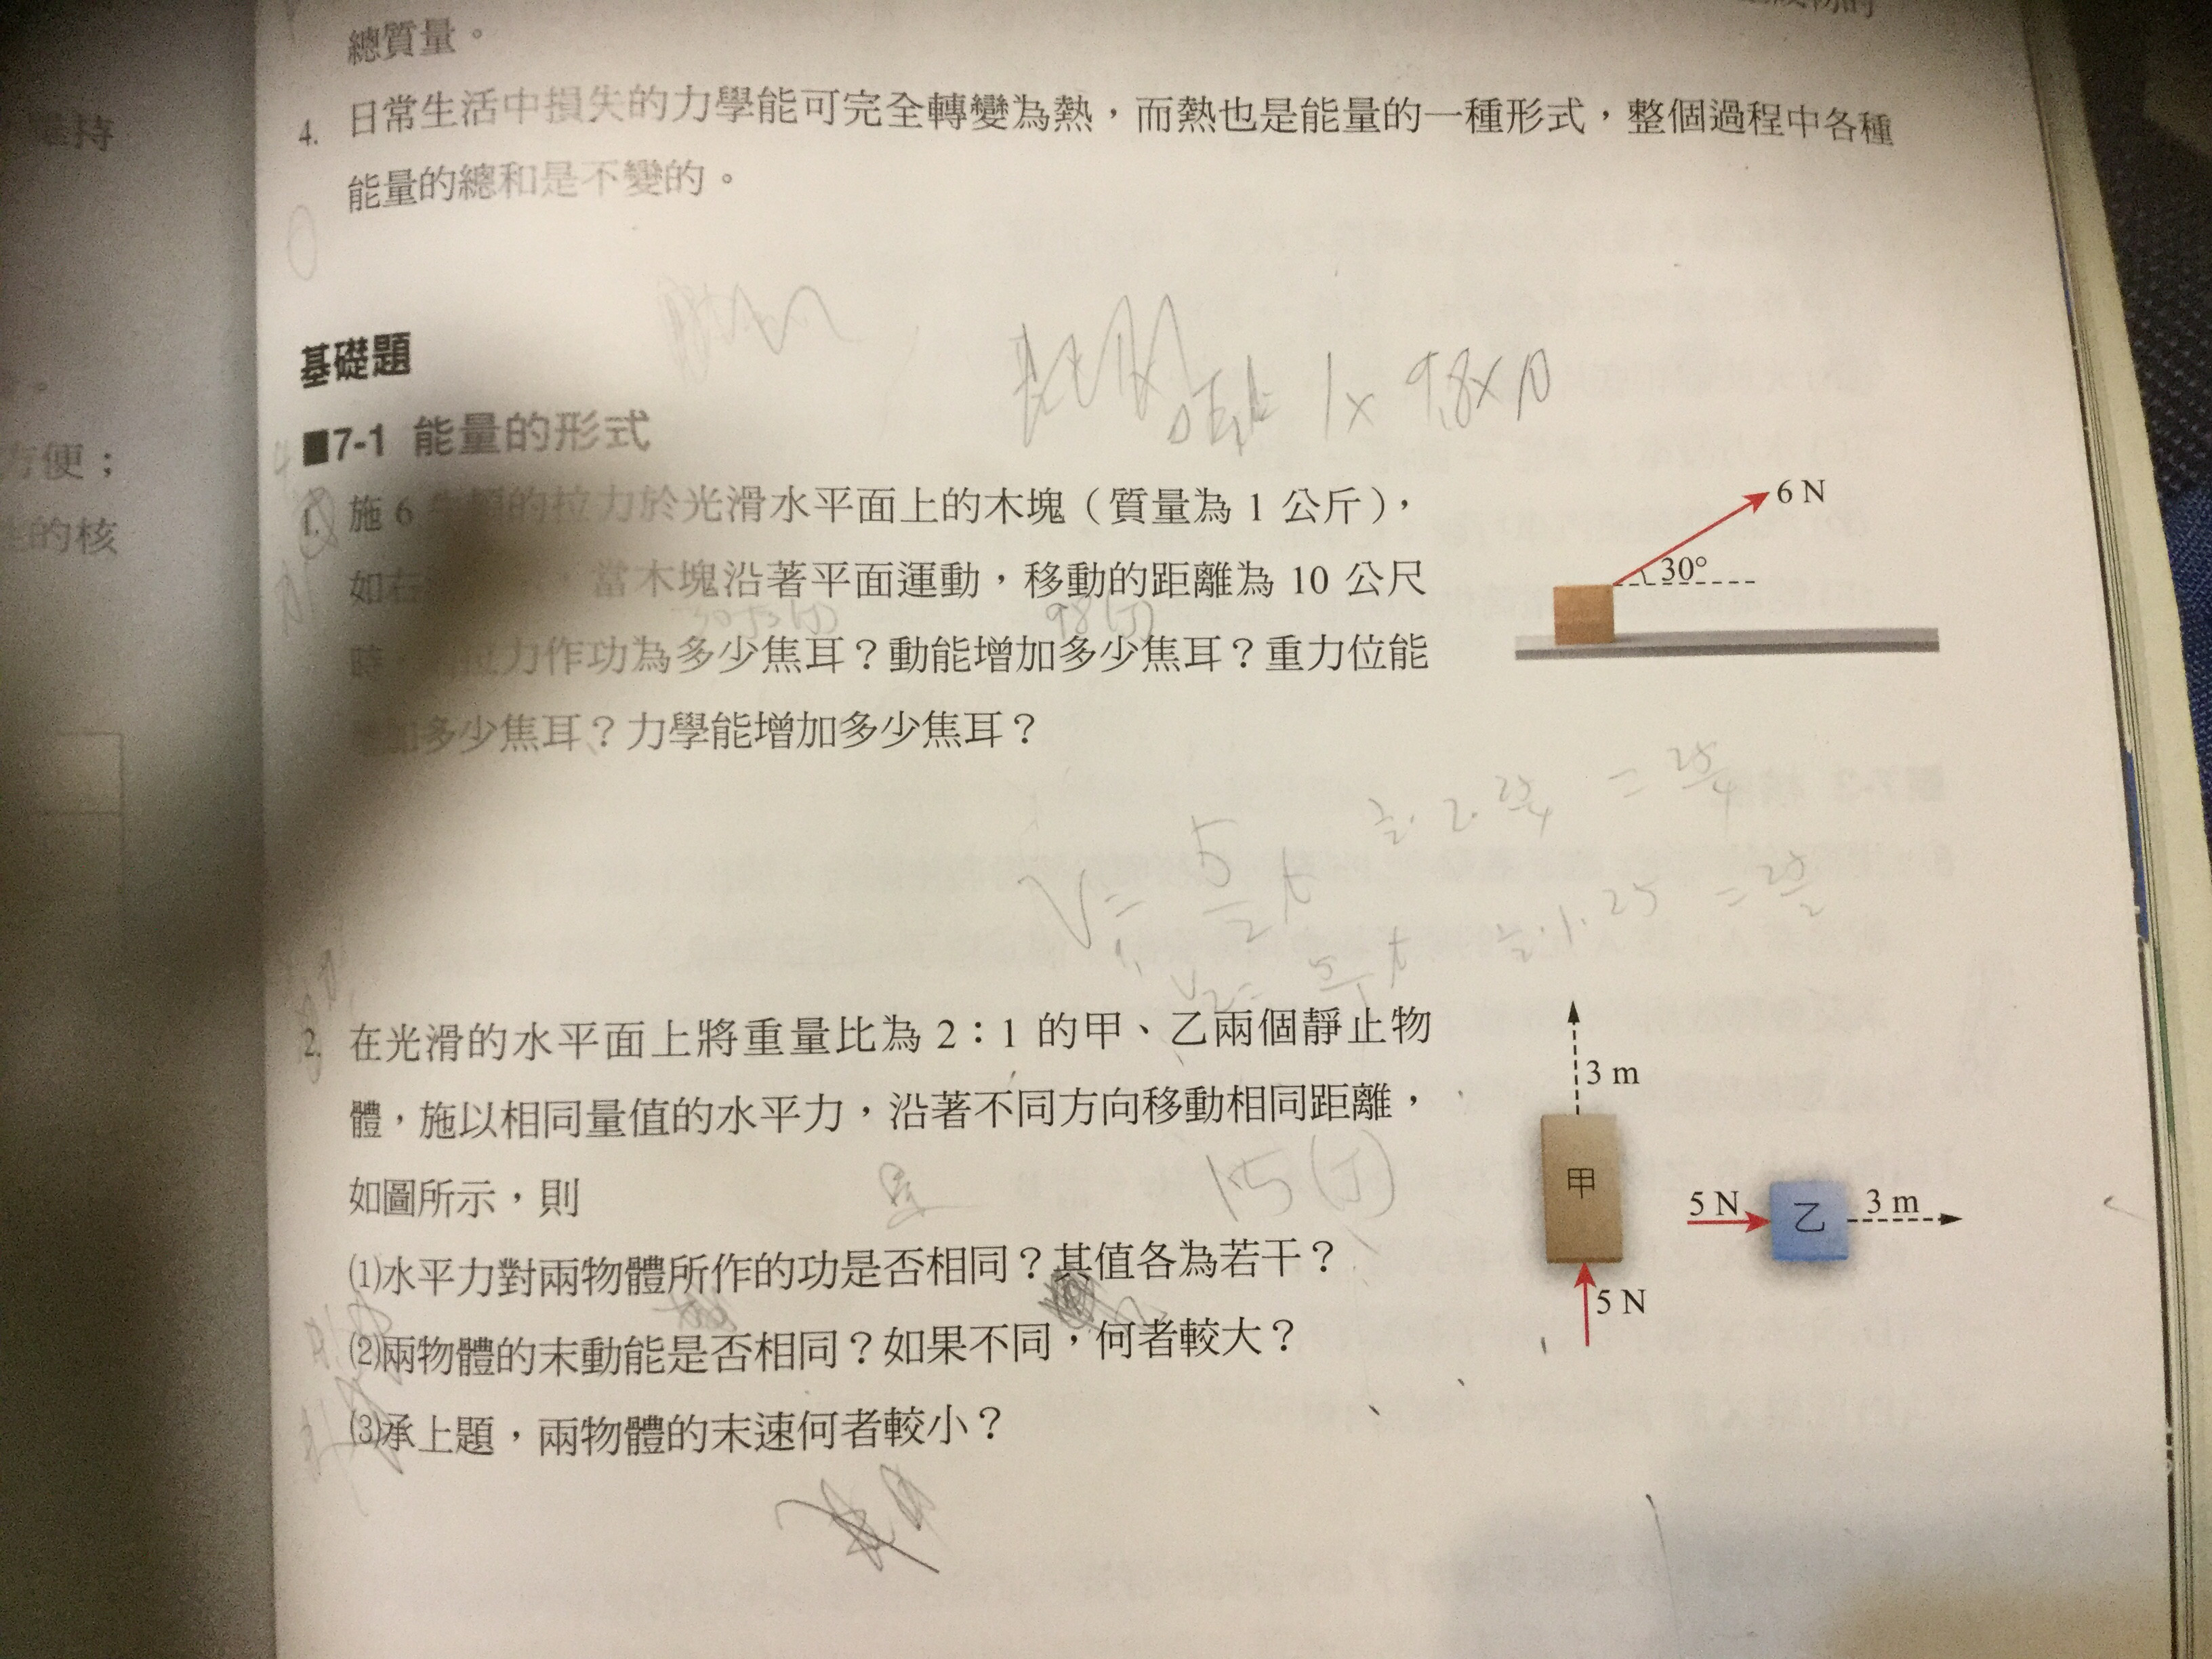 總質量。
4. 日常生活中損失的力學能可完全轉變為熱，而熱也是能量的一種形式，整個過程中各種
能量的總和是不變的。
維持
方便；
的核
基礎題
■7-1 能量的形式
1x 9.8x10
1. 施 6 的拉力於光滑水平面上的木塊（質量為 1 公斤），
如右 當木塊沿著平面運動，移動的距離為 10 公尺
30√3(J) 98(J)
時， 拉力作功為多少焦耳？動能增加多少焦耳？重力位能
加多少焦耳？力學能增加多少焦耳？
6 N
30°
V₁= 5/2 t ½·2·25/4 = 25/4
V₂= 5/1 t ½·1·25 = 25/2
2. 在光滑的水平面上將重量比為 2：1 的甲、乙兩個靜止物
體，施以相同量值的水平力，沿著不同方向移動相同距離，
如圖所示，則
是 15(J)
⑴水平力對兩物體所作的功是否相同？其值各為若干？
⑵兩物體的末動能是否相同？如果不同，何者較大？
⑶承上題，兩物體的末速何者較小？
3 m
甲
5 N
5 N
乙
3 m